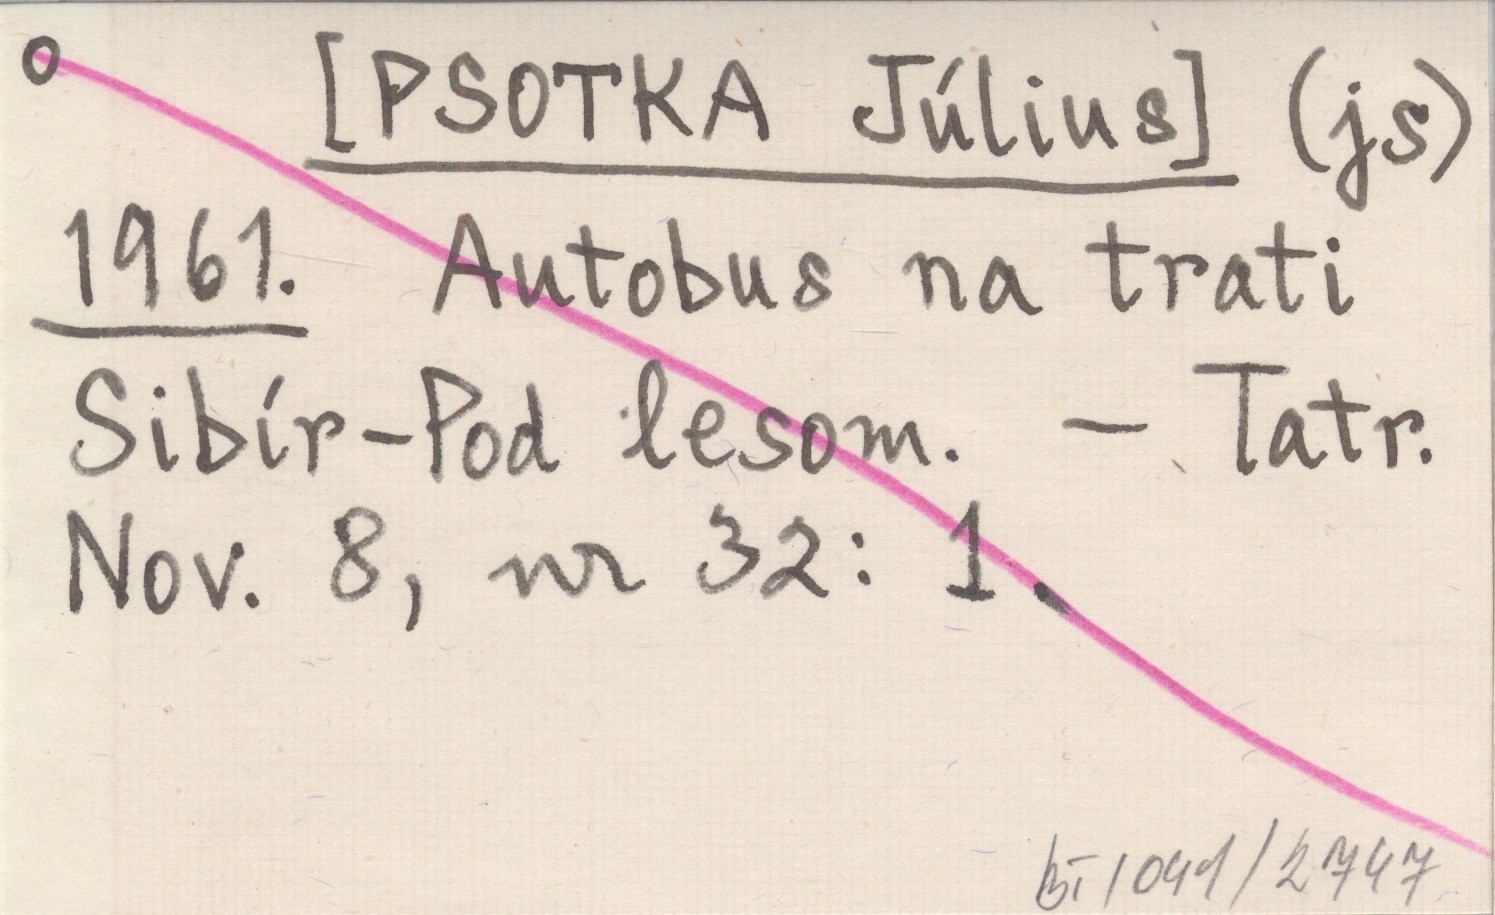 o [PSOTKA Július] (js)
1961. Autobus na trati
Sibír-Pod lesom. - Tatr.
Nov. 8, nr 32: 1.
/2747